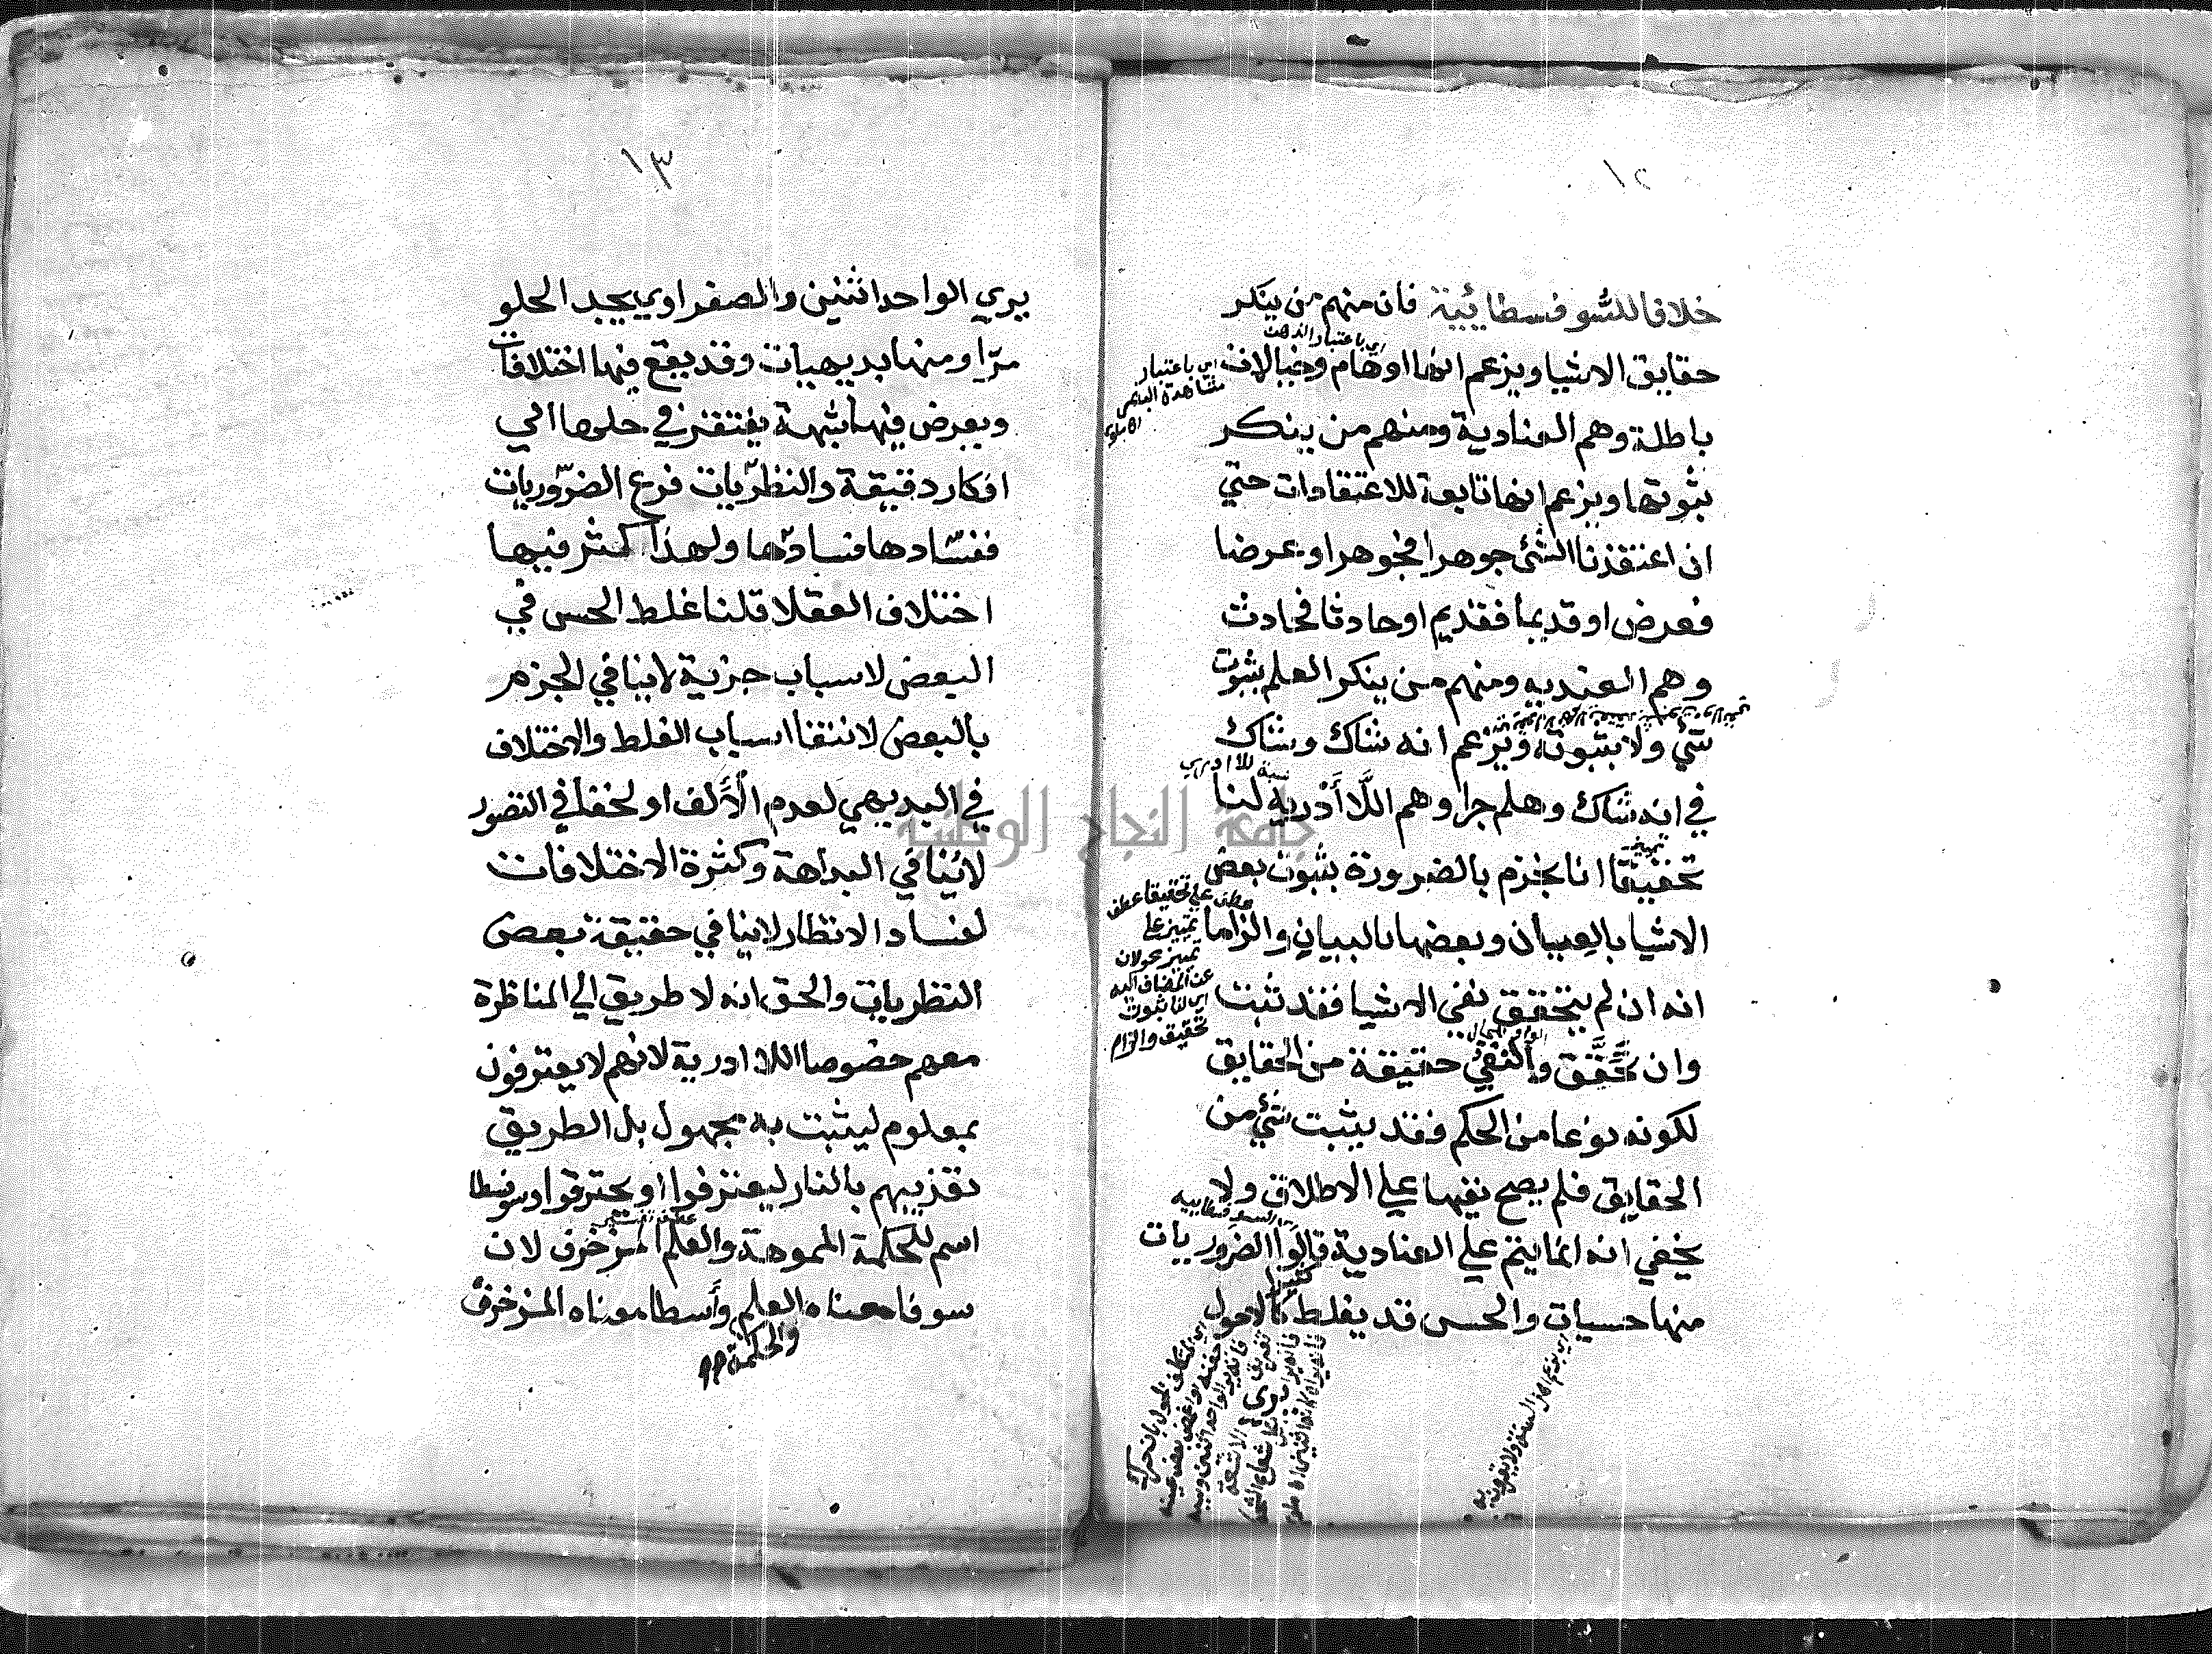 ١٢
خلافا للسُّوفسطائية فان منهم من ينكر
اي باعتبار الذهن
حقايق الاشيا ويزعم انها اوهام وخيالات
اي باعتبار
مشاهدة
باطلة وهم العنادية ومنهم من ينكر
ثبوتها ويزعم انها تابعة للاعتقادات حتي
ان اعتقدنا الشئ جوهرا فجوهر او عرضا
فعرض او قديما فقديم او حادثا فحادث
وهم العنديه ومنهم من ينكر العلم بثبوت
شئ ولا بثبوته ويزعم انه شاك وشاك
نسبة للا ادري
في انه شاك وهلم جرا وهم اللَّا أَدْرِيه لنا
تمييز
تحقيقا انا نجزم بالضرورة بثبوت بعض
الاشيا بالعيان وبعضها بالبيان والزاما
عطف علي تحقيقا عطف
تمييز علي
تمييز محولان
عن المضاف اليه
اي لنا ثبوت
تحقيق والزام
انه ان لم يتحقق نفي الاشيا فقد ثبت
الواو للحال
وان تَحَقَّقَ والنفيُ حقيقة من الحقايق
لكونه نوعا من الحكم فقد يثبت شئ من
الحقايق فلم يصح نفيها علي الاطلاق ولا
اي السوفسطاييه
يخفي انه انما يتم علي العنادية قالوا الضروريات
كثيرا
منها حسيات والحس قد يغلط كالاحول
١٣
يري الواحد اثنين والصفراوي يجد الحلو
مرّا ومنها بديهيات وقد يقع فيها اختلافات
ويعرض فيها شبهة يفتقر في حلها الي
افكار دقيقة والنظريّات فرع الضرّوريات
ففسّادها فسادها ولهذا كثر فيها
اختلاف العقلا قلنا غلط الحس في
البعض لاسباب جزية لا ينافي الجزم
بالبعض لانتفا اسباب الغلط والاختلاف
في البديهي لعدم الألف او لخفا في التصور
لا ينافي البداهة وكثرة الاختلافات
لفساد الانظار لا ينافي حقيقة بعض
النظريات والحق انه لا طريق الي المناظرة
معهم خصوصا اللا ادرية لانهم لا يعترفون
بمعلوم ليثبت به مجهول بل الطريق
تعذيبهم بالنار ليعترفوا او يحترقوا وسوفسطا
عطف تفسير
اسم للحكمة المموهة والعلم المزخرف لان
سوفا معناه العلم وأسطا معناه المزخرف
والحكمة